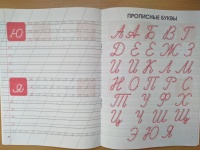 Ю
Я
ПРОПИСНЫЕ БУКВЫ
А Б В Г
Д Е Ё Ж З
И Й К Л М
Н О П Р С
Т У Ф Х
Ц Ч Ш Щ
Э Ю Я